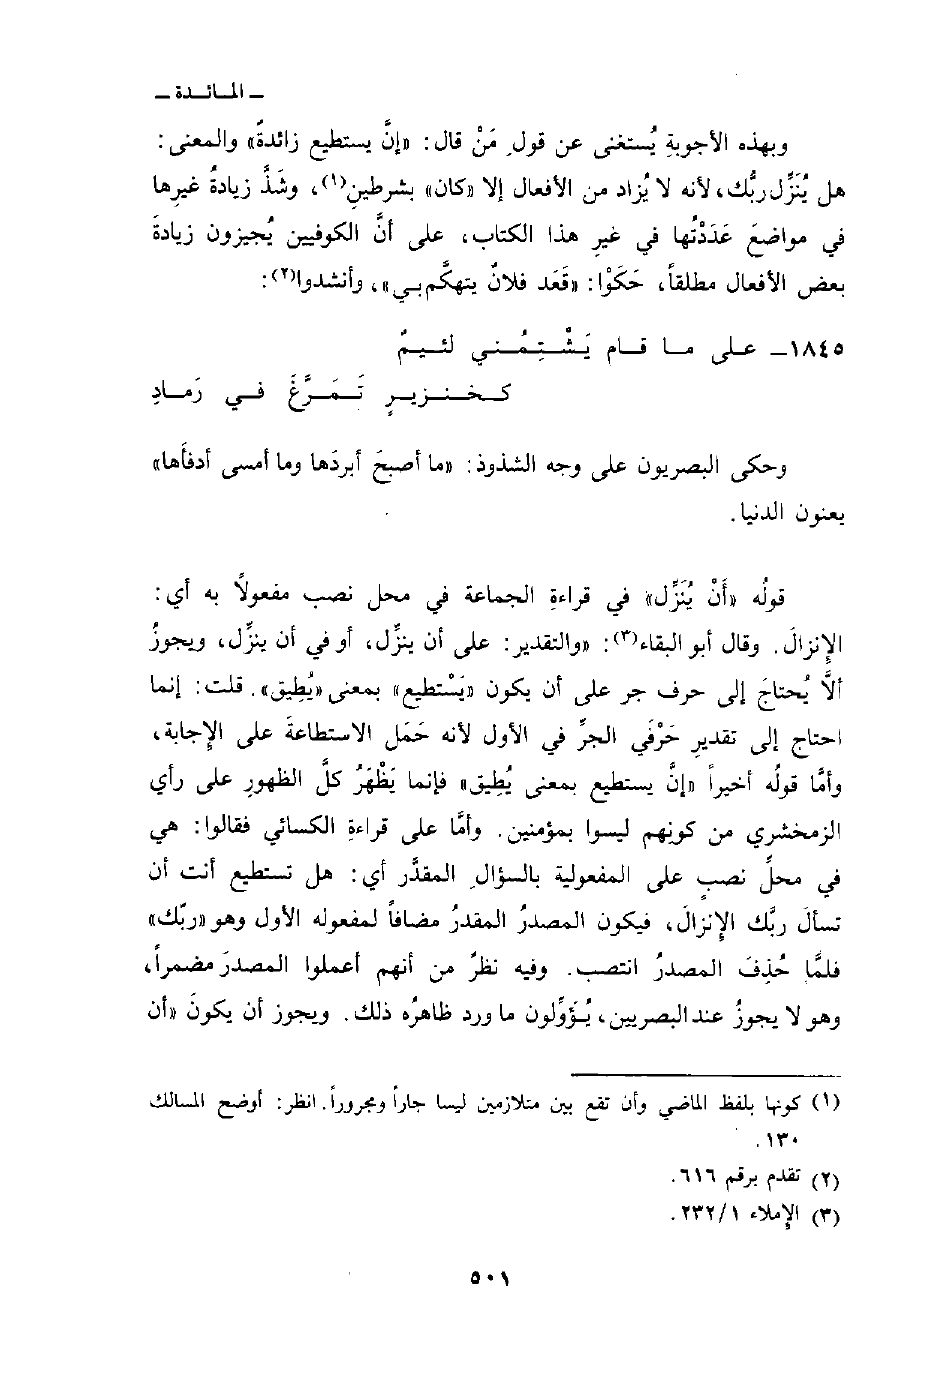 ـ المـائـدة ـ
وبهذه الأجوبةِ يُستغنى عن قولِ مَنْ قال: «إنَّ يستطيع زائدةٌ» والمعنى:
هل يُنَزِّل ربُّك، لأنه لا يُزاد من الأفعال إلا «كان» بشرطينِ(١)، وشَذَّ زيادةُ غيرِها
في مواضعَ عَدَدْتُها في غيرِ هذا الكتاب، على أنَّ الكوفيين يُجيزون زيادةَ
بعض الأفعال مطلقاً، حَكَوْا: «قَعَد فلانٌ يتهكَّم بي»، وأنشدوا(٢):
١٨٤٥ـ علـى مـا قـام يَشْـتِـمُـني لئـيـمٌ
كـخـنـزيـرٍ تَـمَـرَّغَ فـي رَمـادِ
وحكى البصريون على وجه الشذوذ: «ما أصبحَ أبردَها وما أمسى أدفأَها»
يعنون الدنيا.
قولُه «أَنْ يُنَزِّل» في قراءةِ الجماعة في محل نصب مفعولاً به أي:
الإِنزالَ. وقال أبو البقاء(٣): «والتقدير: على أن ينزِّل، أو في أن ينزِّل، ويجوزُ
ألاَّ يُحتاجَ إلى حرف جر على أن يكون «يَسْتطيع» بمعنى «يُطيق». قلت: إنما
احتاج إلى تقديرِ حَرْفَي الجرِّ في الأول لأنه حَمَل الاستطاعةَ على الإِجابة،
وأمَّا قولُه أخيراً «إنَّ يستطيع بمعنى يُطيق» فإنما يَظْهَرُ كلَّ الظهورِ على رأي
الزمخشري من كونِهم ليسوا بمؤمنين. وأمَّا على قراءةِ الكسائي فقالوا: هي
في محلِّ نصبٍ على المفعولية بالسؤالِ المقدَّر أي: هل تستطيع أنت أن
تسألَ ربَّك الإِنزالَ، فيكون المصدرُ المقدرُ مضافاً لمفعوله الأول وهو «ربَّك»
فلمَّا حُذِفَ المصدرُ انتصب. وفيه نظرٌ من أنهم أعملوا المصدرَ مضمراً،
وهو لا يجوزُ عند البصريين، يُؤَوِّلون ما ورد ظاهرُه ذلك. ويجوز أن يكونَ «أن
(١) كونها بلفظ الماضي وأن تقع بين متلازمين ليسا جاراً ومجروراً. انظر: أوضح المسالك
١٣٠.
(٢) تقدم برقم ٦١٦.
(٣) الإِملاء ٢٣٢/١.
٥٠١